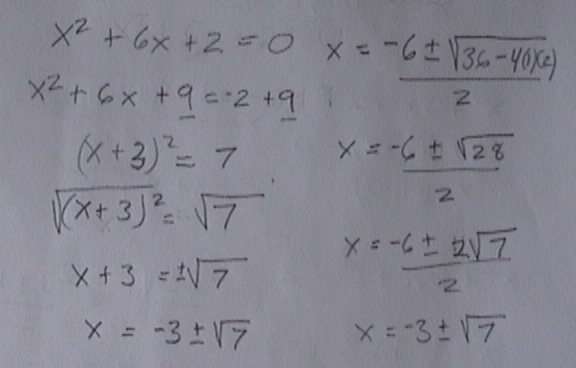 x² + 6x + 2 = 0
x² + 6x + 9 = -2 + 9
(x + 3)² = 7
√(x + 3)² = √7
x + 3 = ±√7
x = -3 ± √7
x = -6 ± √36 - 4(1)(2) / 2
x = -6 ± √28 / 2
x = -6 ± 2√7 / 2
x = -3 ± √7